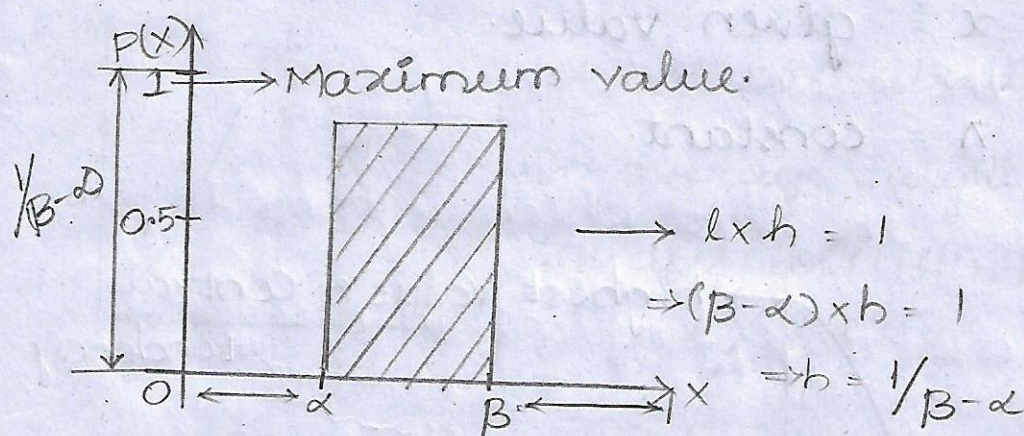 P(X)
1 → Maximum value.
1/β-α
0.5
→ l x h = 1
⇒ (β-α) x h = 1
⇒ h = 1/β-α
0 α β 1 X